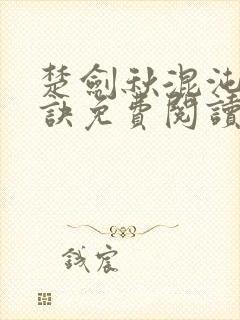 楚劍秋混沌
訣免費閱讀
錢宸